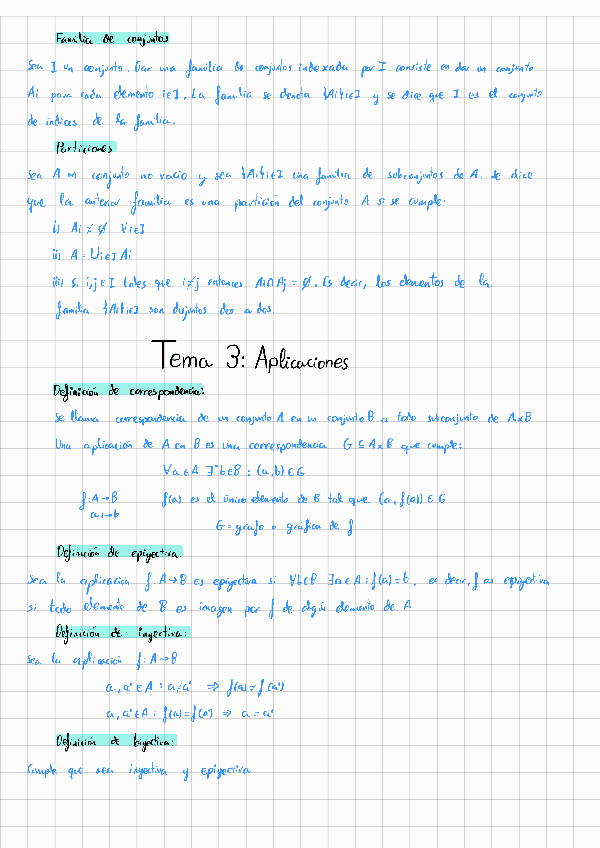 Familia de conjuntos
Sea I un conjunto. Dar una familia de conjuntos indexada por I consiste en dar un conjunto
Ai para cada elemento i∈I. La familia se denota {Ai}i∈I y se dice que I es el conjunto
de índices de la familia.
Particiones
Sea A un conjunto no vacío y sea {Ai}i∈I una familia de subconjuntos de A. Se dice
que la anterior familia es una partición del conjunto A si se cumple:
i) Ai ≠ ∅ ∀i∈I
ii) A = ∪i∈I Ai
iii) Si i,j∈I tales que i≠j entonces Ai∩Aj = ∅. Es decir, los elementos de la
familia {Ai}i∈I son disjuntos dos a dos.
Tema 3: Aplicaciones
Definición de correspondencia:
Se llama correspondencia de un conjunto A en un conjunto B a todo subconjunto de AxB
Una aplicación de A en B es una correspondencia G ⊆ AxB que cumple:
∀a∈A ∃*b∈B : (a,b)∈G
f:A→B f(a) es el único elemento de B tal que (a, f(a)) ∈ G
a↦b
G = grafo o gráfica de f
Definición de epiyectiva:
Sea la aplicación f:A→B es epiyectiva si ∀b∈B ∃a∈A : f(a)=b, es decir, f es epiyectiva
si todo elemento de B es imagen por f de algún elemento de A
Definición de inyectiva:
Sea la aplicación f:A→B
a, a'∈A : a≠a' ⇒ f(a)≠f(a')
a, a'∈A : f(a)=f(a') ⇒ a=a'
Definición de biyectiva:
Cumple que sea inyectiva y epiyectiva